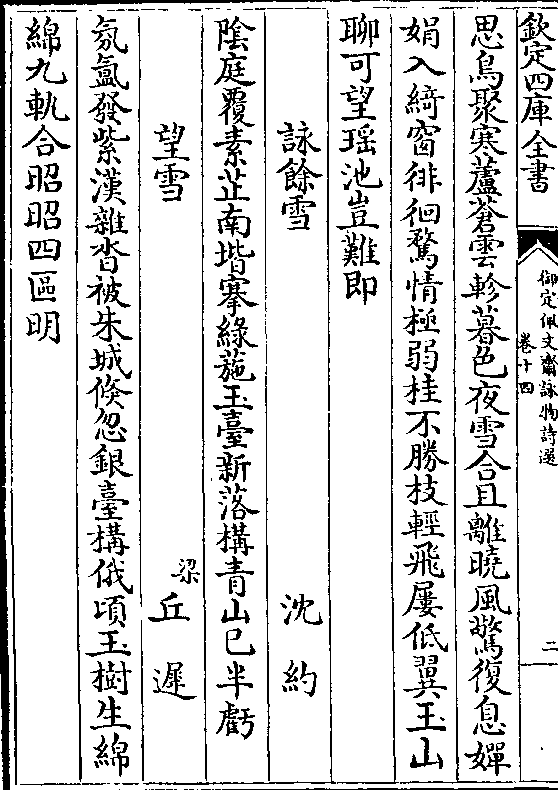 欽定四庫全書
御定佩文齋詠物詩選
卷十四
二
思鳥聚寒蘆蒼雲軫暮色夜雪合且離曉風驚復息嬋
娟入綺窗徘徊騖情極弱桂不勝枝輕飛屢低翼玉山
聊可望瑶池豈難即
詠餘雪 沈約
陰庭覆素芷南堦搴綠葹玉臺新落構青山已半虧
望雪 梁丘遲
氛氳發紫漢雜沓被朱城倐忽銀臺構俄頃玉樹生綿
綿九軌合昭昭四區明